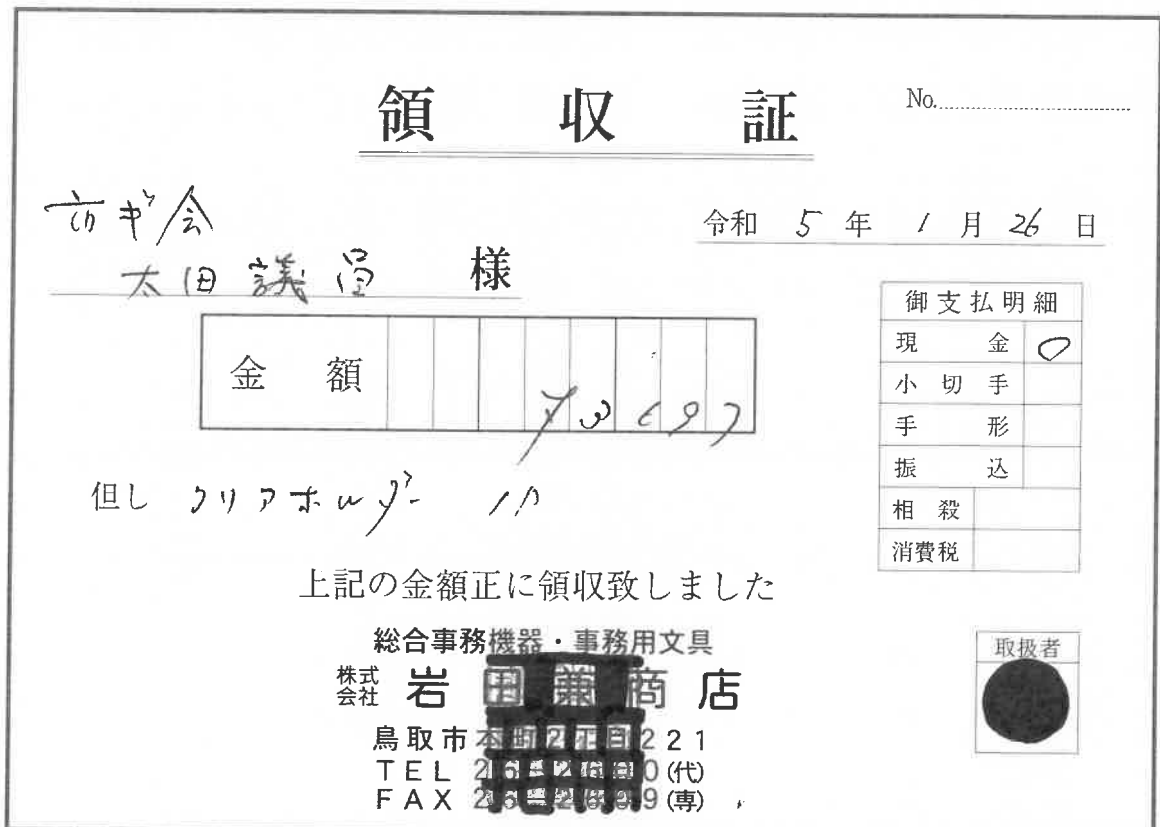 領収証
No.
市ギ会
太田議員 様
令和 5 年 1 月 26 日
金額 ¥3697
但し クリアホルダー
御支払明細
現金 ○
小切手
手形
振込
相殺
消費税
上記の金額正に領収致しました
総合事務機器・事務用文具
株式会社 岩田兼商店
鳥取市本町2丁目221
TEL (代)
FAX (専)
取扱者